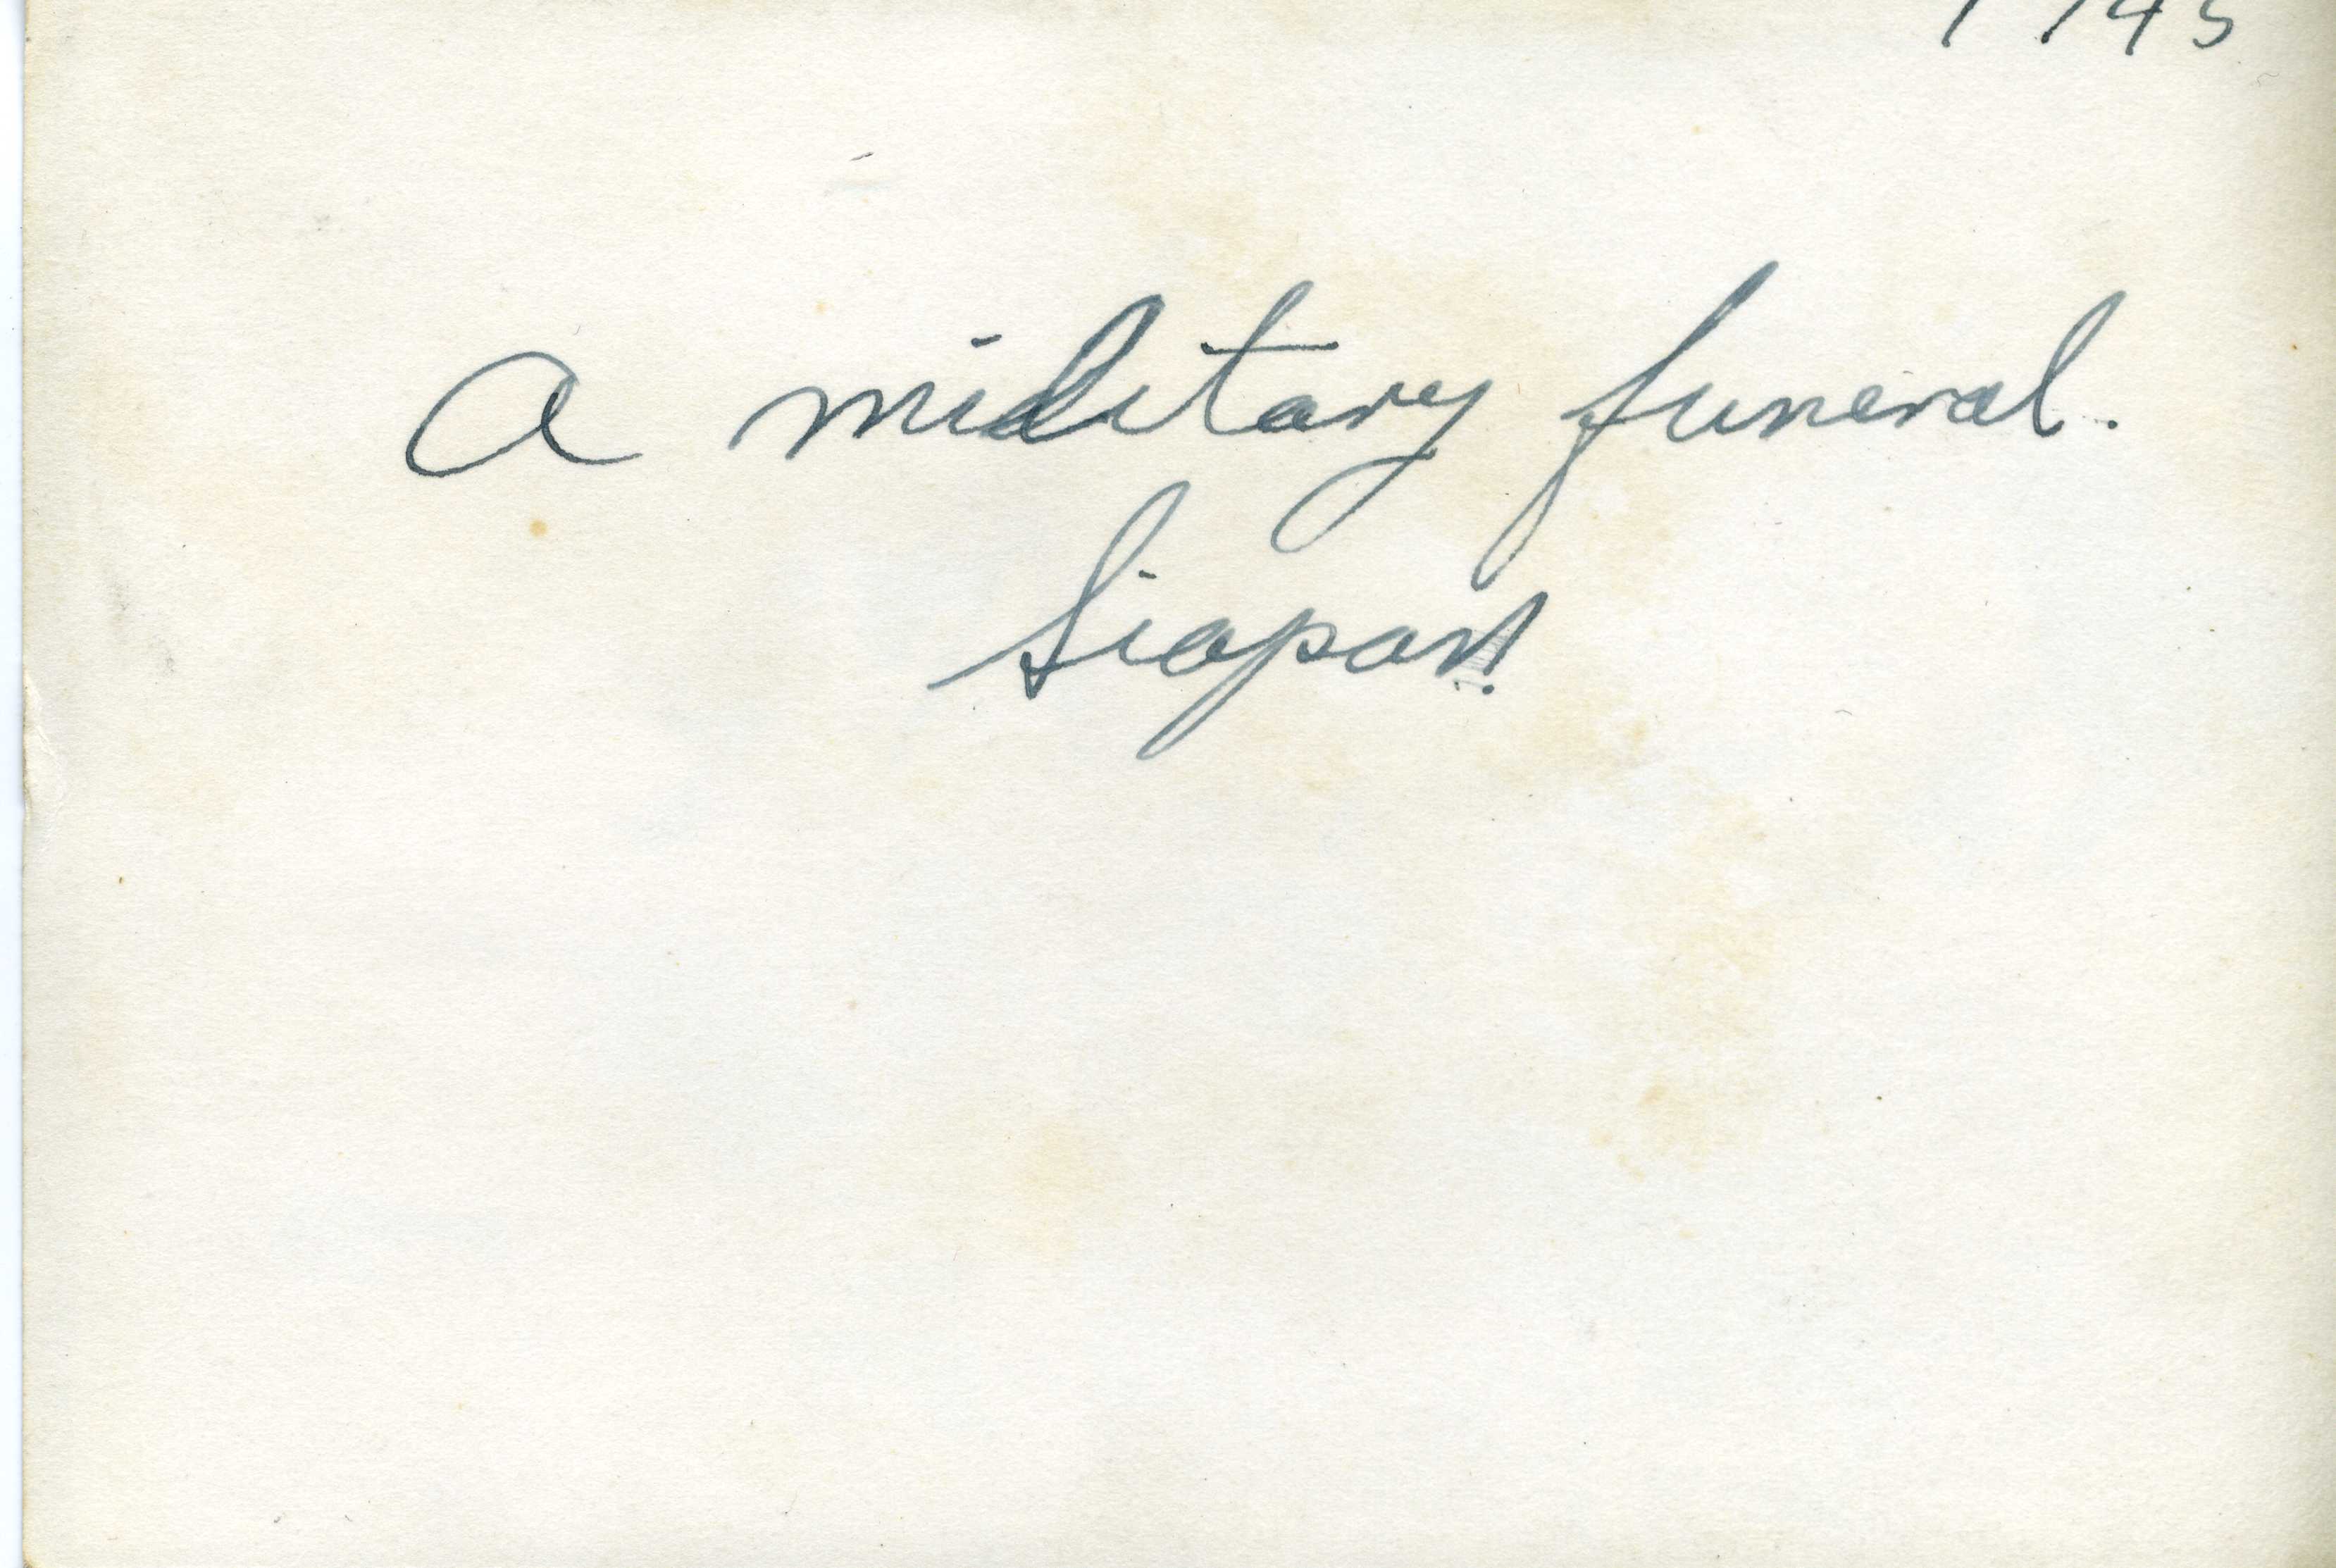 1945
A military funeral.
Siapan!